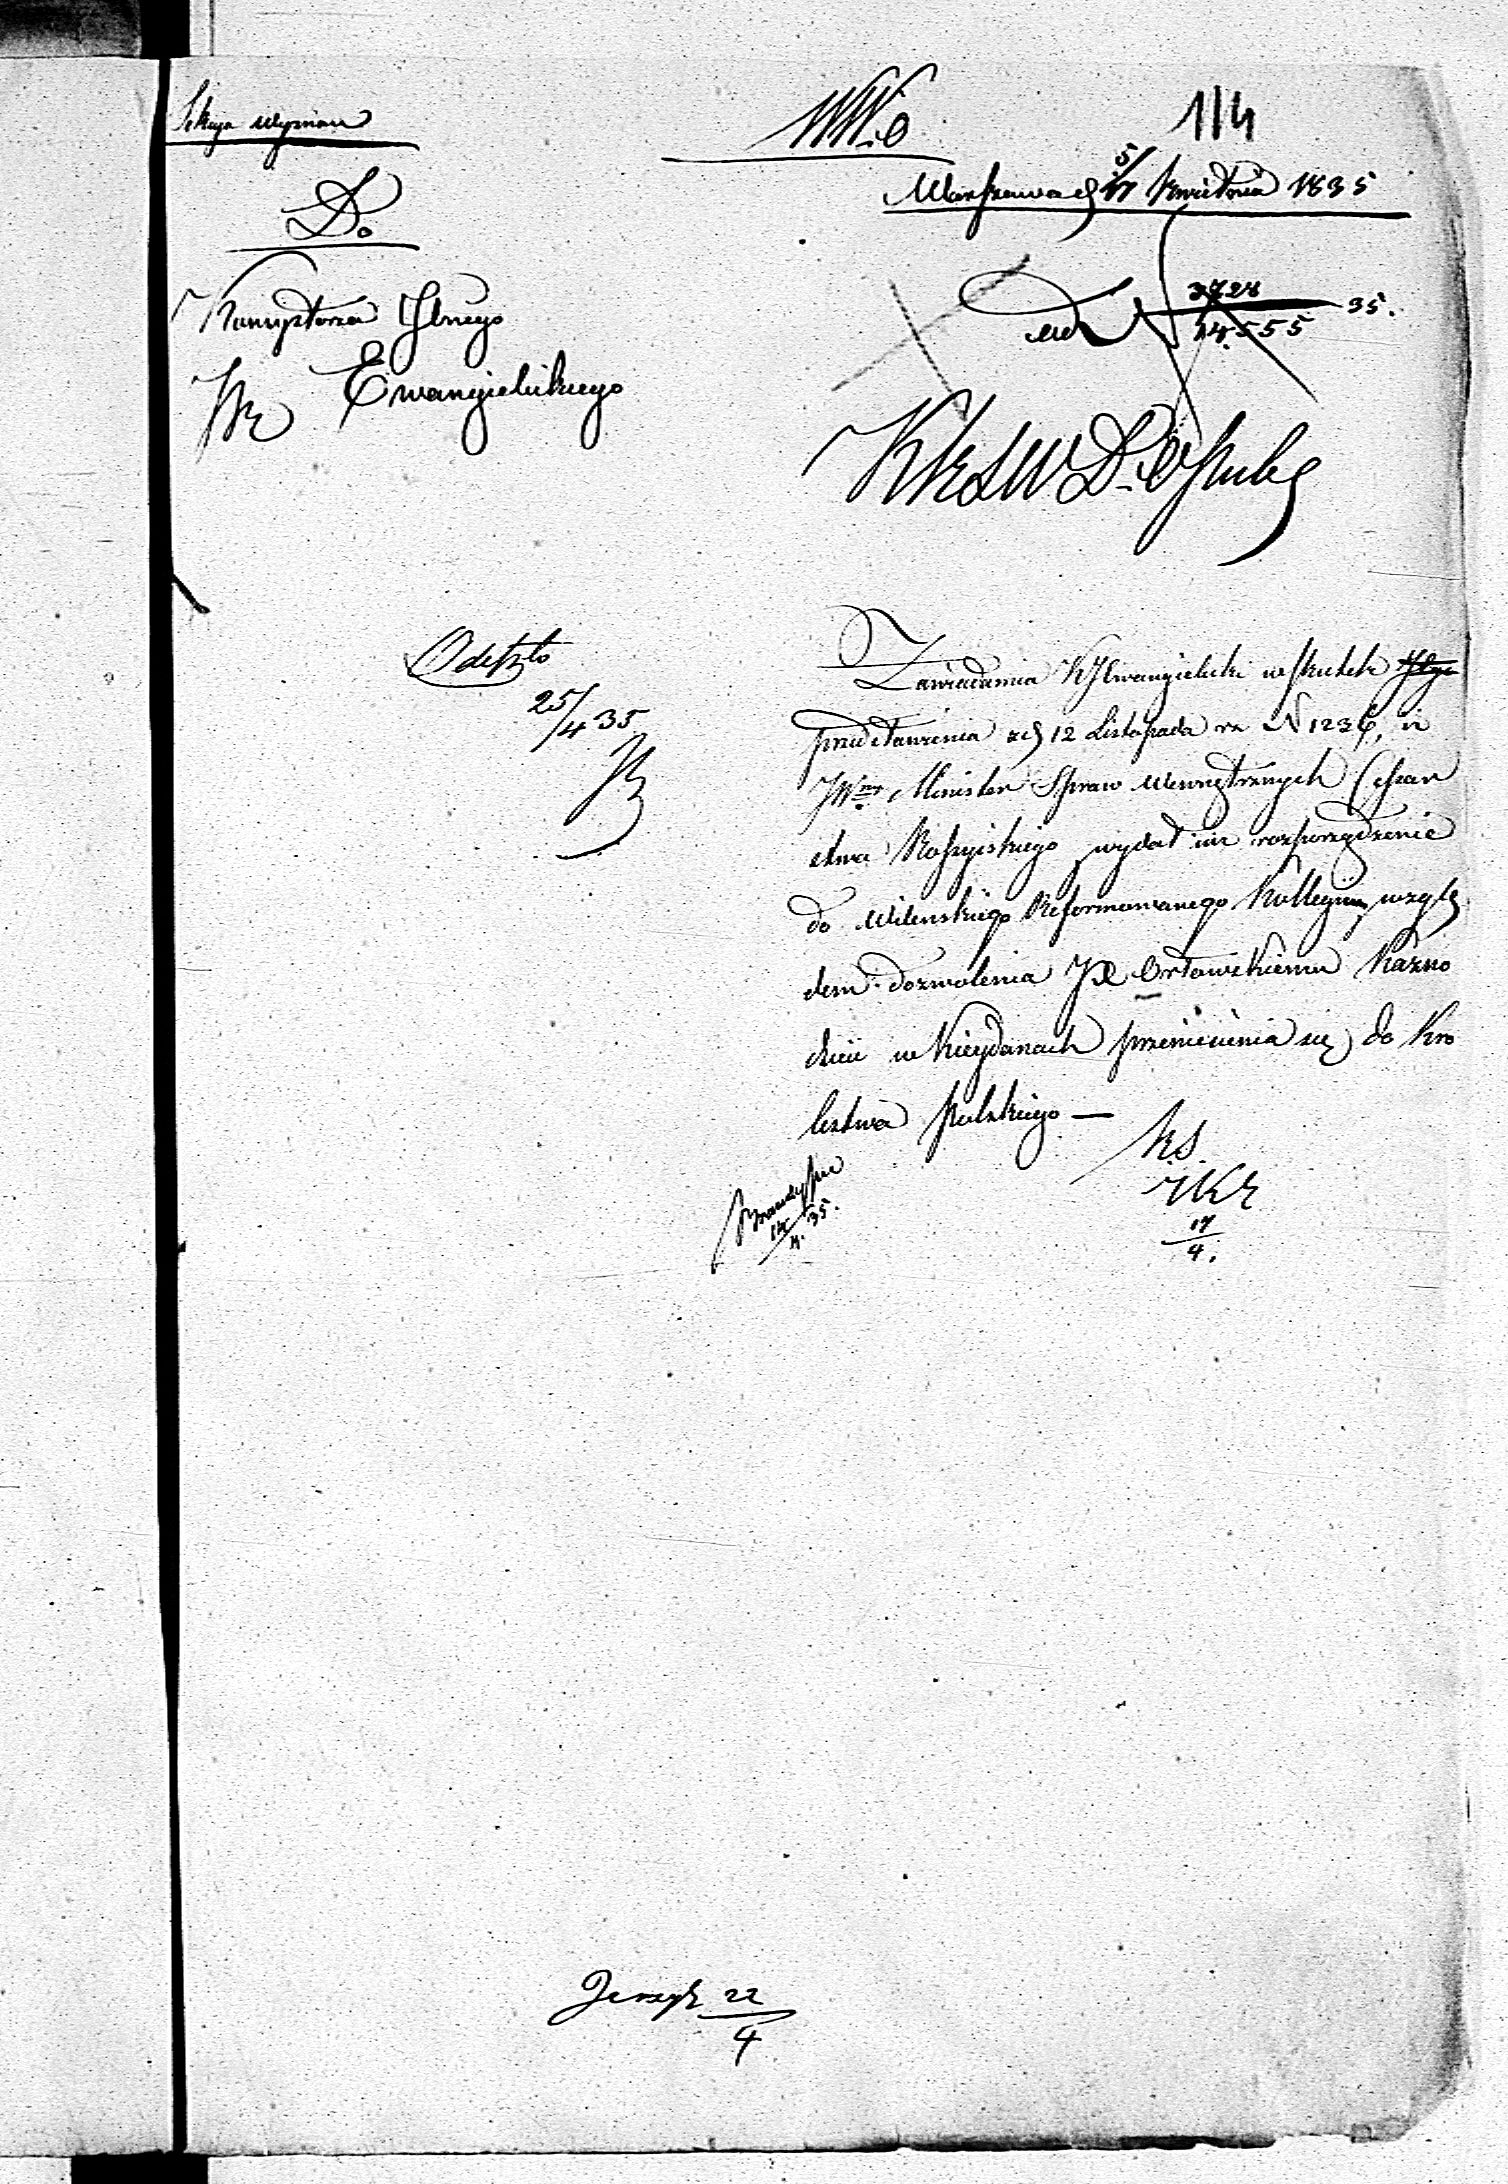 Sekcya Wyznań
WW.O
114
Warszawa d 5/17 Kwietnia 1835
Do
Konsystorza Glnego
Ewangielickiego
ad N 3728/14555 35.
KRSWD. OPub
Odeszło
25/4 35
Zawiadamia KGEwangielicki w skutek
przedstawienia z d 12 Listopada rz N 1236, iż
JWny Minister Spraw Wewnętrznych Cesar
stwa Rossyiskiego wydał iuż rozporządzenie
do Wileńskiego Reformowanego Kollegium, wzglę
dem dozwolenia JX Orłowskiemu Kazno
dziei w Kieydanach przeniesienia się do Kró
lestwa Polskiego —
14/4. 35.
17/4.
Jerzyk 22/4